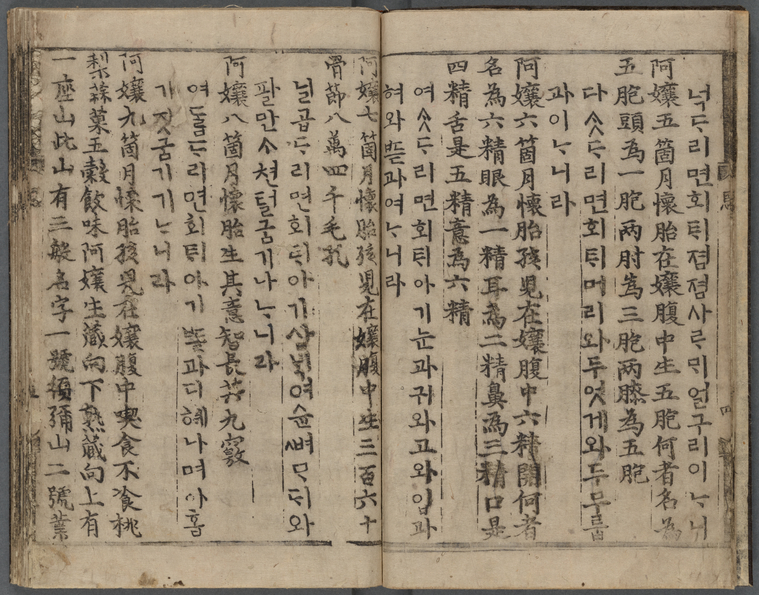 넉ᄃᆞ리면회ᄐᆡ졈졈사ᄅᆞᄆᆡ얼구리이ᄂᆞ니
阿孃五箇月懷胎在孃腹中生五胞何者名為
五胞頭為一胞兩肘為三胞兩膝為五胞
다ᄉᆞᆺᄃᆞ리면회ᄐᆡ머리와두엇게와두무릅
과이ᄂᆞ니라
阿孃六箇月懷胎孩兒在孃腹中六精開何者
名為六精眼為一精耳為二精鼻為三精口是
四精舌是五精意為六精
여ᄉᆞᆺᄃᆞ리면회ᄐᆡ아기눈과귀와고와입과
혀와ᄠᅳᆮ과여ᄂᆞ니라
阿孃七箇月懷胎孩兒在孃腹中生三百六十
骨節八萬四千毛孔
닐곱ᄃᆞ리면회ᄐᆡ아기삼ᄇᆡᆨ여슌ᄲᅧᄆᆞᄃᆡ와
팔만ᄉᆞ쳔털굼기나ᄂᆞ니라
阿孃八箇月懷胎生其意智長其九竅
여ᄃᆞᆲᄃᆞ리면회ᄐᆡ아기ᄠᅳᆮ과디혜나며아홉
가짓굼기기ᄂᆞ니라
阿孃九箇月懷胎孩兒在孃腹中喫食不飡桃
梨蒜菓五穀飲味阿孃生藏向下熟藏向上有
一座山此山有三般名字一號須彌山二號業